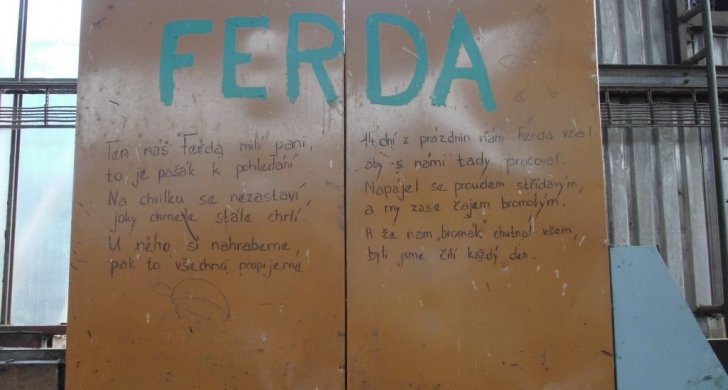 FERDA
Ten náš Ferda milí pani,
to je pašák k pohledání.
Na chvilku se nezastaví,
joky chmele stále chrlí.
U něho si nahrabeme,
pak to všechno propijeme.
14 dní z prázdnin nám Ferda vzal
aby s námi tady pracoval.
Napájel se proudem střídavým,
a my zase čajem bromovým.
A že nám bromek chutnal všem,
byli jsme čilí každý den.